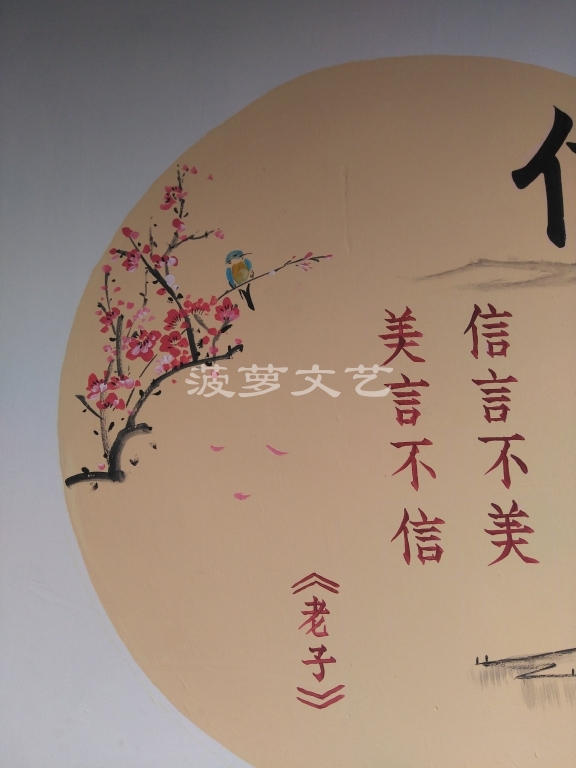 信言不美
美言不信
《老子》
菠萝文艺